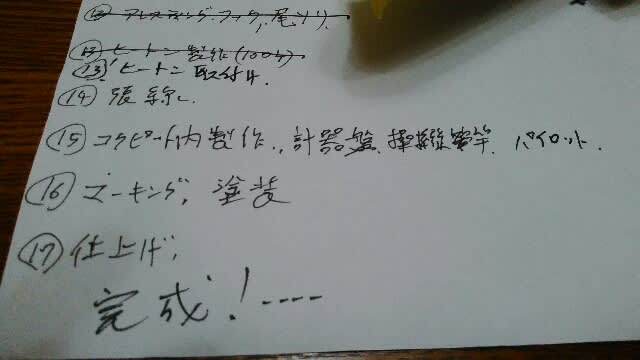 アレスティング フック, 尾ソリ.
ヒートン製作(100ケ)
⑬ ヒートン取付け.
⑭ 張線.
⑮ コクピート内製作., 計器盤, 操縦桿. パイロット.
⑯ マーキング, 塗装
⑰ 仕上げ,
完成!----